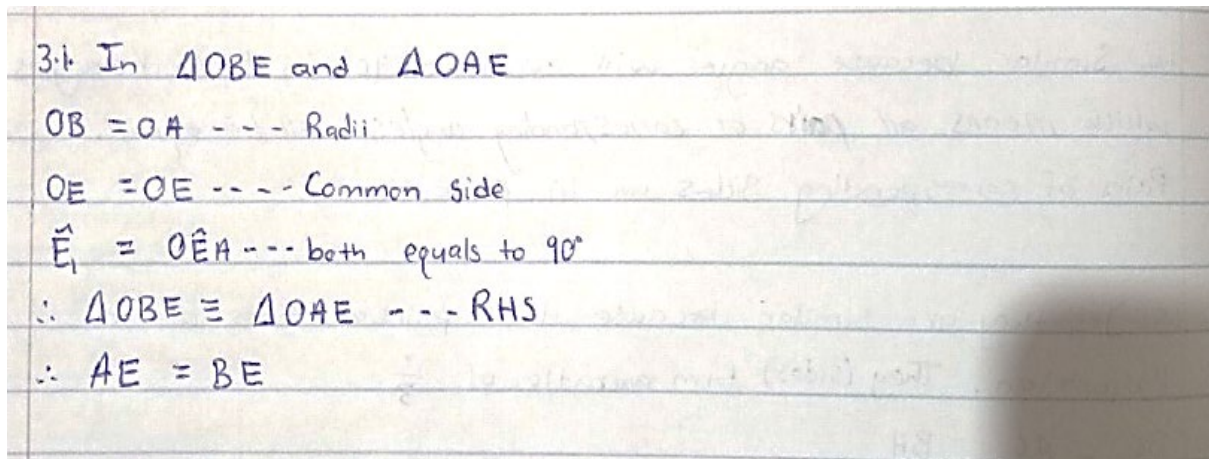 3.1. In ΔOBE and ΔOAE
OB = OA --- Radii
OE = OE ---- Common side
Ê₁ = OÊA --- both equals to 90°
∴ ΔOBE ≡ ΔOAE ---- RHS
∴ AE = BE